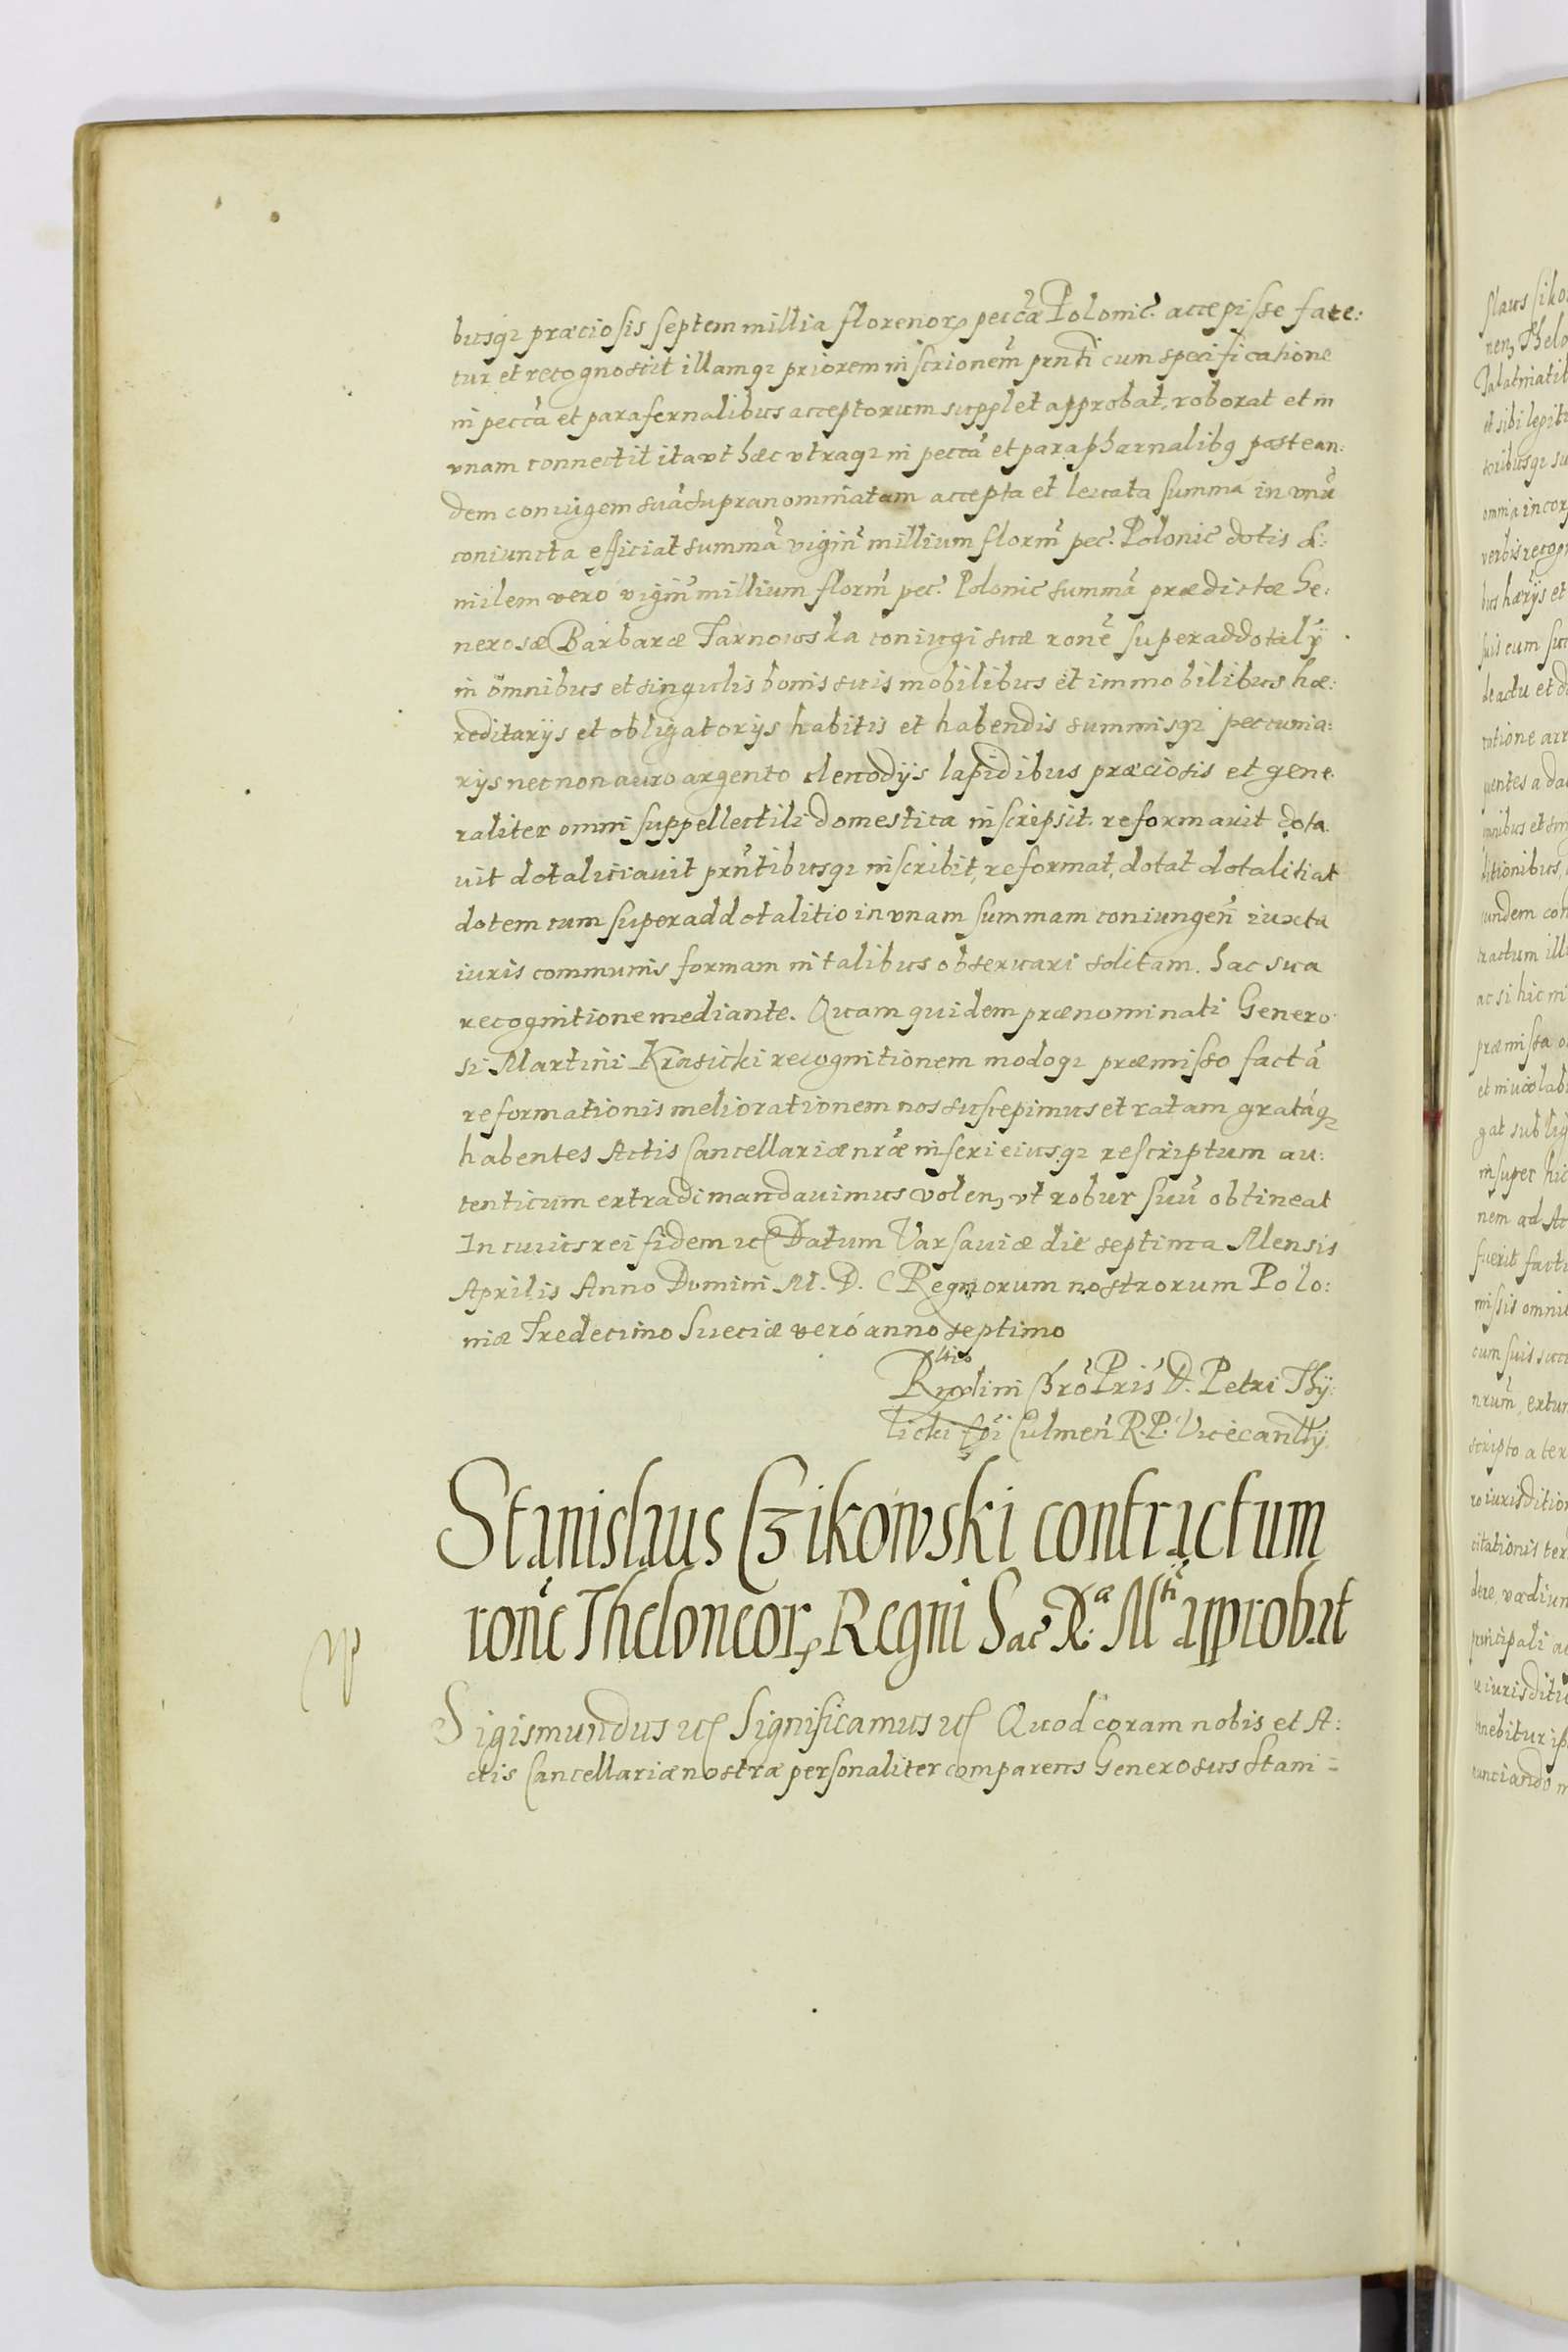 busqꝫ præciosis septem millia florenorꝝ peccæ̃ Polonic̃ accepisse fate:
tur et recognoscit illamqꝫ priorem inscrionem̃ prnti cum specificatione
in peccã et parafernalibus acceptorum supplet approbat, roborat et in
vnam connectit ita vt hæc vtraqꝫ in peccã et parapharnalibꝰ post ean:
dem coniugem suã supranominatam accepta et leuata summa in vnũ
coniuncta efficiat summã vigin̄ millium florm̃ pec̃ Polonic̃ dotis si:
milem vero vigin̄ millium florm̃ pec̃ Polonic̃ summã prædictæ Ge:
nerosæ Barbaræ Tarnowska coniugi suæ ronẽ superaddotalÿ
in omnibus et singulis bonis suis mobilibus et immobilibus hæ:
reditarijs et obligatorijs habitis et habendis summisqꝫ pecunia:
rijs necnon auro argento clenodijs lapidibus præciosis et gene:
raliter omni suppellectili domestica inscripsit. reformauit dota
uit dotaliciauit prñtibusqꝫ inscribit, reformat, dotat dotalitiat
dotem cum superaddotalitio in vnam summam coniungeñ iuxta
iuris communis formam in talibus obseruari solitam. hac sua
recognitione mediante. Quam quidem prænominati Genero
si Martini Krasicki recognitionem modoqꝫ præmisso factã
reformationis meliorationem nos suscepimus et ratam gratãqꝫ
habentes Actis Cancellariæ nræ̃ inseri eiusqꝫ rescriptum au:
tenticum extradi mandauimus volenꝭ vt robur suũ obtineat
In cuius rei fidem ꝛc Datum Varsauiæ die septima Mensis
Aprilis Anno Domini M. D. C Regnorum nostrorum Polo:
niæ Tredecimo Sueciæ veró anno septimo
Rlatio
Rndini Chrõ Pris̃ D. Petri Thÿ:
licki Epĩ Culmeñ R. P. Vicecanllÿ
Stanislaus Czikowski contractum
ronẽ Theloneorꝝ Regni Sac̃ R.ᵃ Mᵗⁱ approbat
Sigismundus ꝛc Significamus ꝛc Quod coram nobis et A:
ctis Cancellariæ nostræ personaliter comparens Generosus Stani=